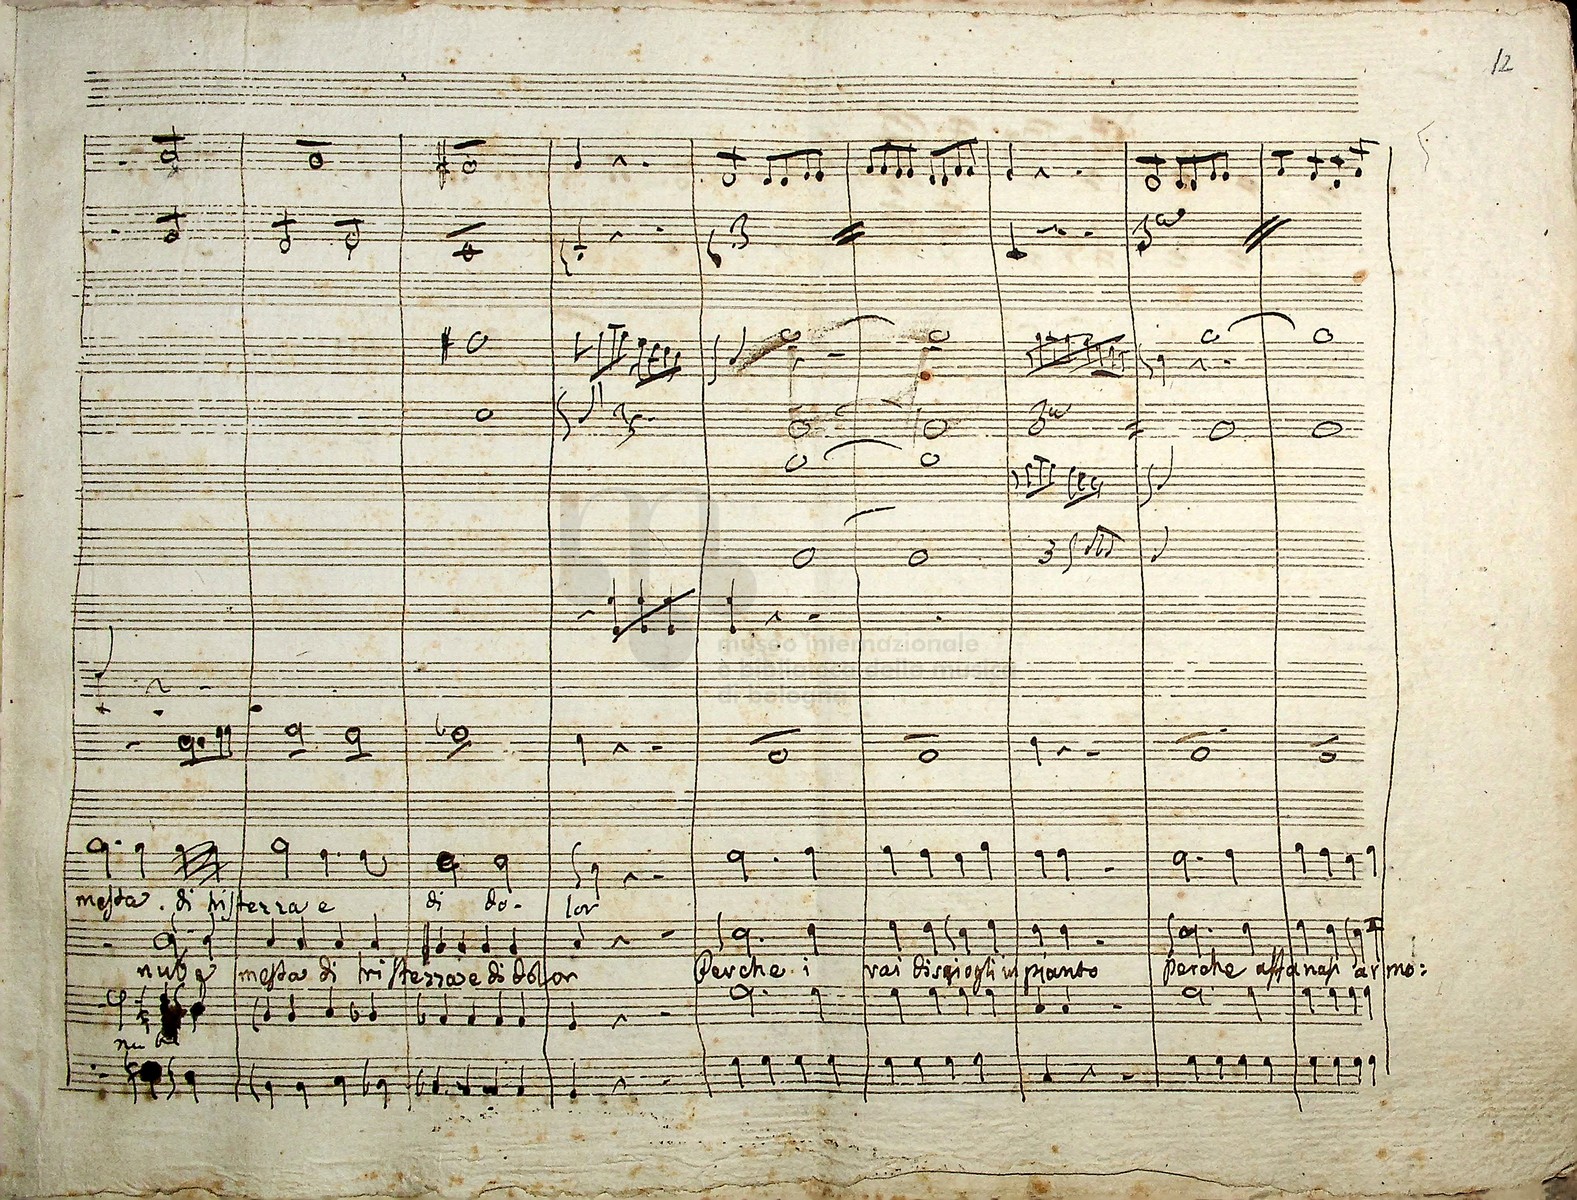 12
museo internazionale
e biblioteca della musica
di bologna
mesta di tristezza e di do- lor
nube mesta di tristezza e di dolor Perche i rai disciogli in pianto Perche affanasi a' mo:
nu be